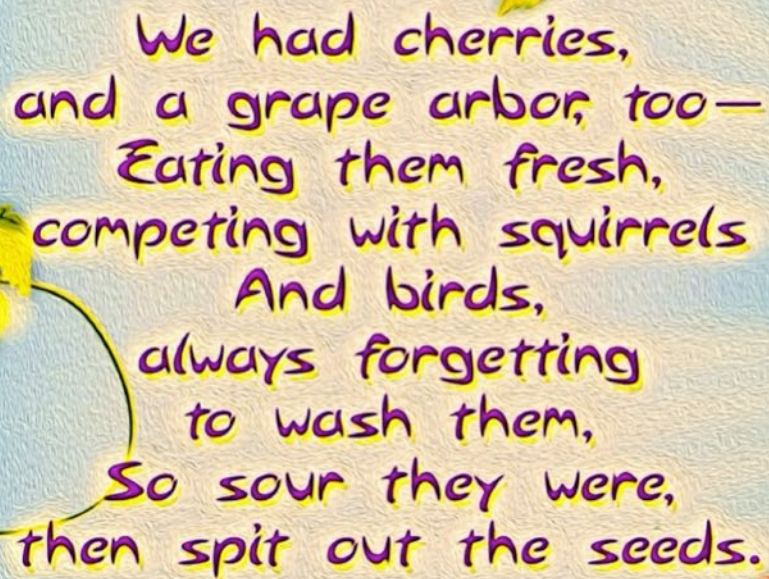 We had cherries,
and a grape arbor, too—
Eating them fresh,
competing with squirrels
And birds,
always forgetting
to wash them,
So sour they were,
then spit out the seeds.